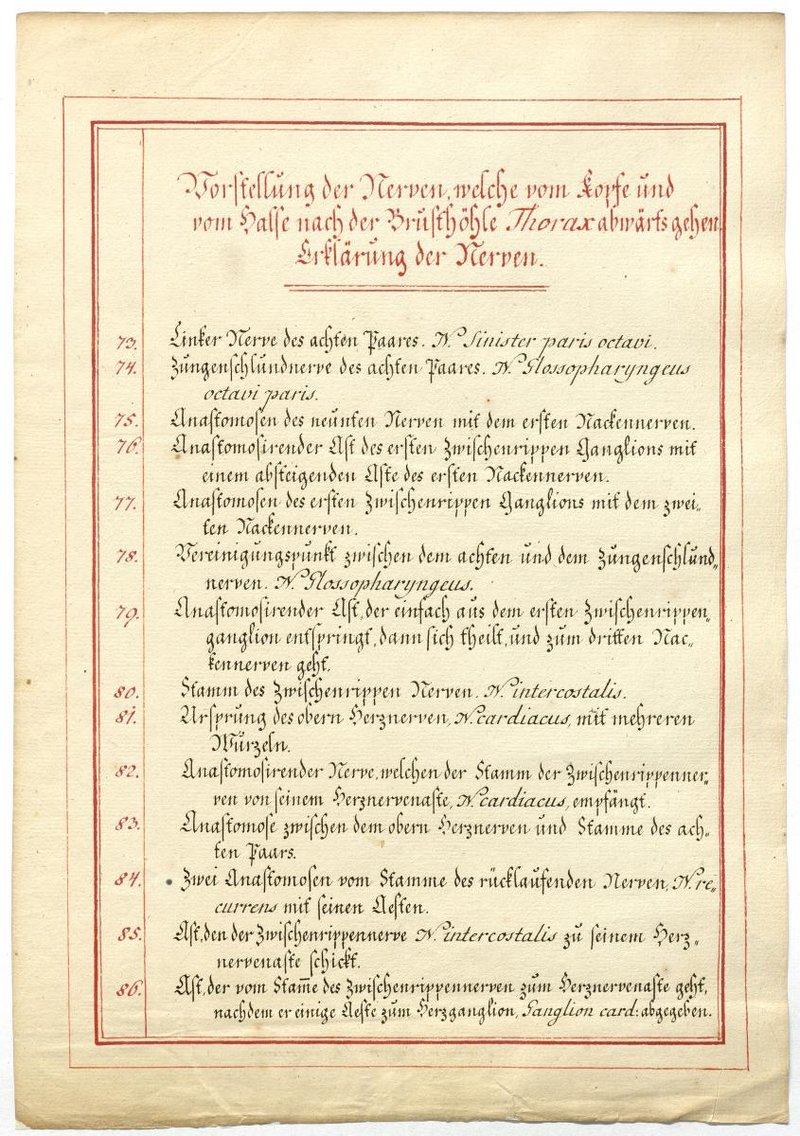 Vorstellung der Nerven, welche vom Kopfe und
vom Halse nach der Brusthöhle Thorax abwärts gehen.
Erklärung der Nerven.
73. Linker Nerve des achten Paares. N. Sinister paris octavi.
74. Zungenschlundnerve des achten Paares. N. Glossopharyngeus
octavi paris.
75. Anastomosen des neunten Nerven mit dem ersten Nackennerven.
76. Anastomosirender Ast des ersten Zwischenrippen Ganglions mit
einem absteigenden Aste des ersten Nackennerven.
77. Anastomosen des ersten Zwischenrippen Ganglions mit dem zwei„
ten Nackennerven.
78. Vereinigungspunkt zwischen dem achten und dem Zungenschlund„
nerven. N. Glossopharyngeus.
79. Anastomosirender Ast, der einfach aus dem ersten Zwischenrippen„
ganglion entspringt, dann sich theilt, und zum dritten Nac„
kennerven geht.
80. Stamm des Zwischenrippen Nerven. N. intercostalis.
81. Ursprung des obern Herznerven, N. cardiacus, mit mehreren
Wurzeln.
82. Anastomosirender Nerve, welchen der Stamm der Zwischenrippenner„
ven von seinem Herznervenaste, N. cardiacus, empfängt.
83. Anastomose zwischen dem obern Herznerven und Stamme des ach„
ten Paars.
84. Zwei Anastomosen vom Stamme des rücklaufenden Nerven, N. re„
currens mit seinen Aesten.
85. Ast, den der Zwischenrippennerve N. intercostalis zu seinem Herz„
nervenaste schickt.
86. Ast, der vom Stam̅e des Zwischenrippennerven zum Herznervenaste geht,
nachdem er einige Aeste zum Herzganglion, Ganglion card: abgegeben.